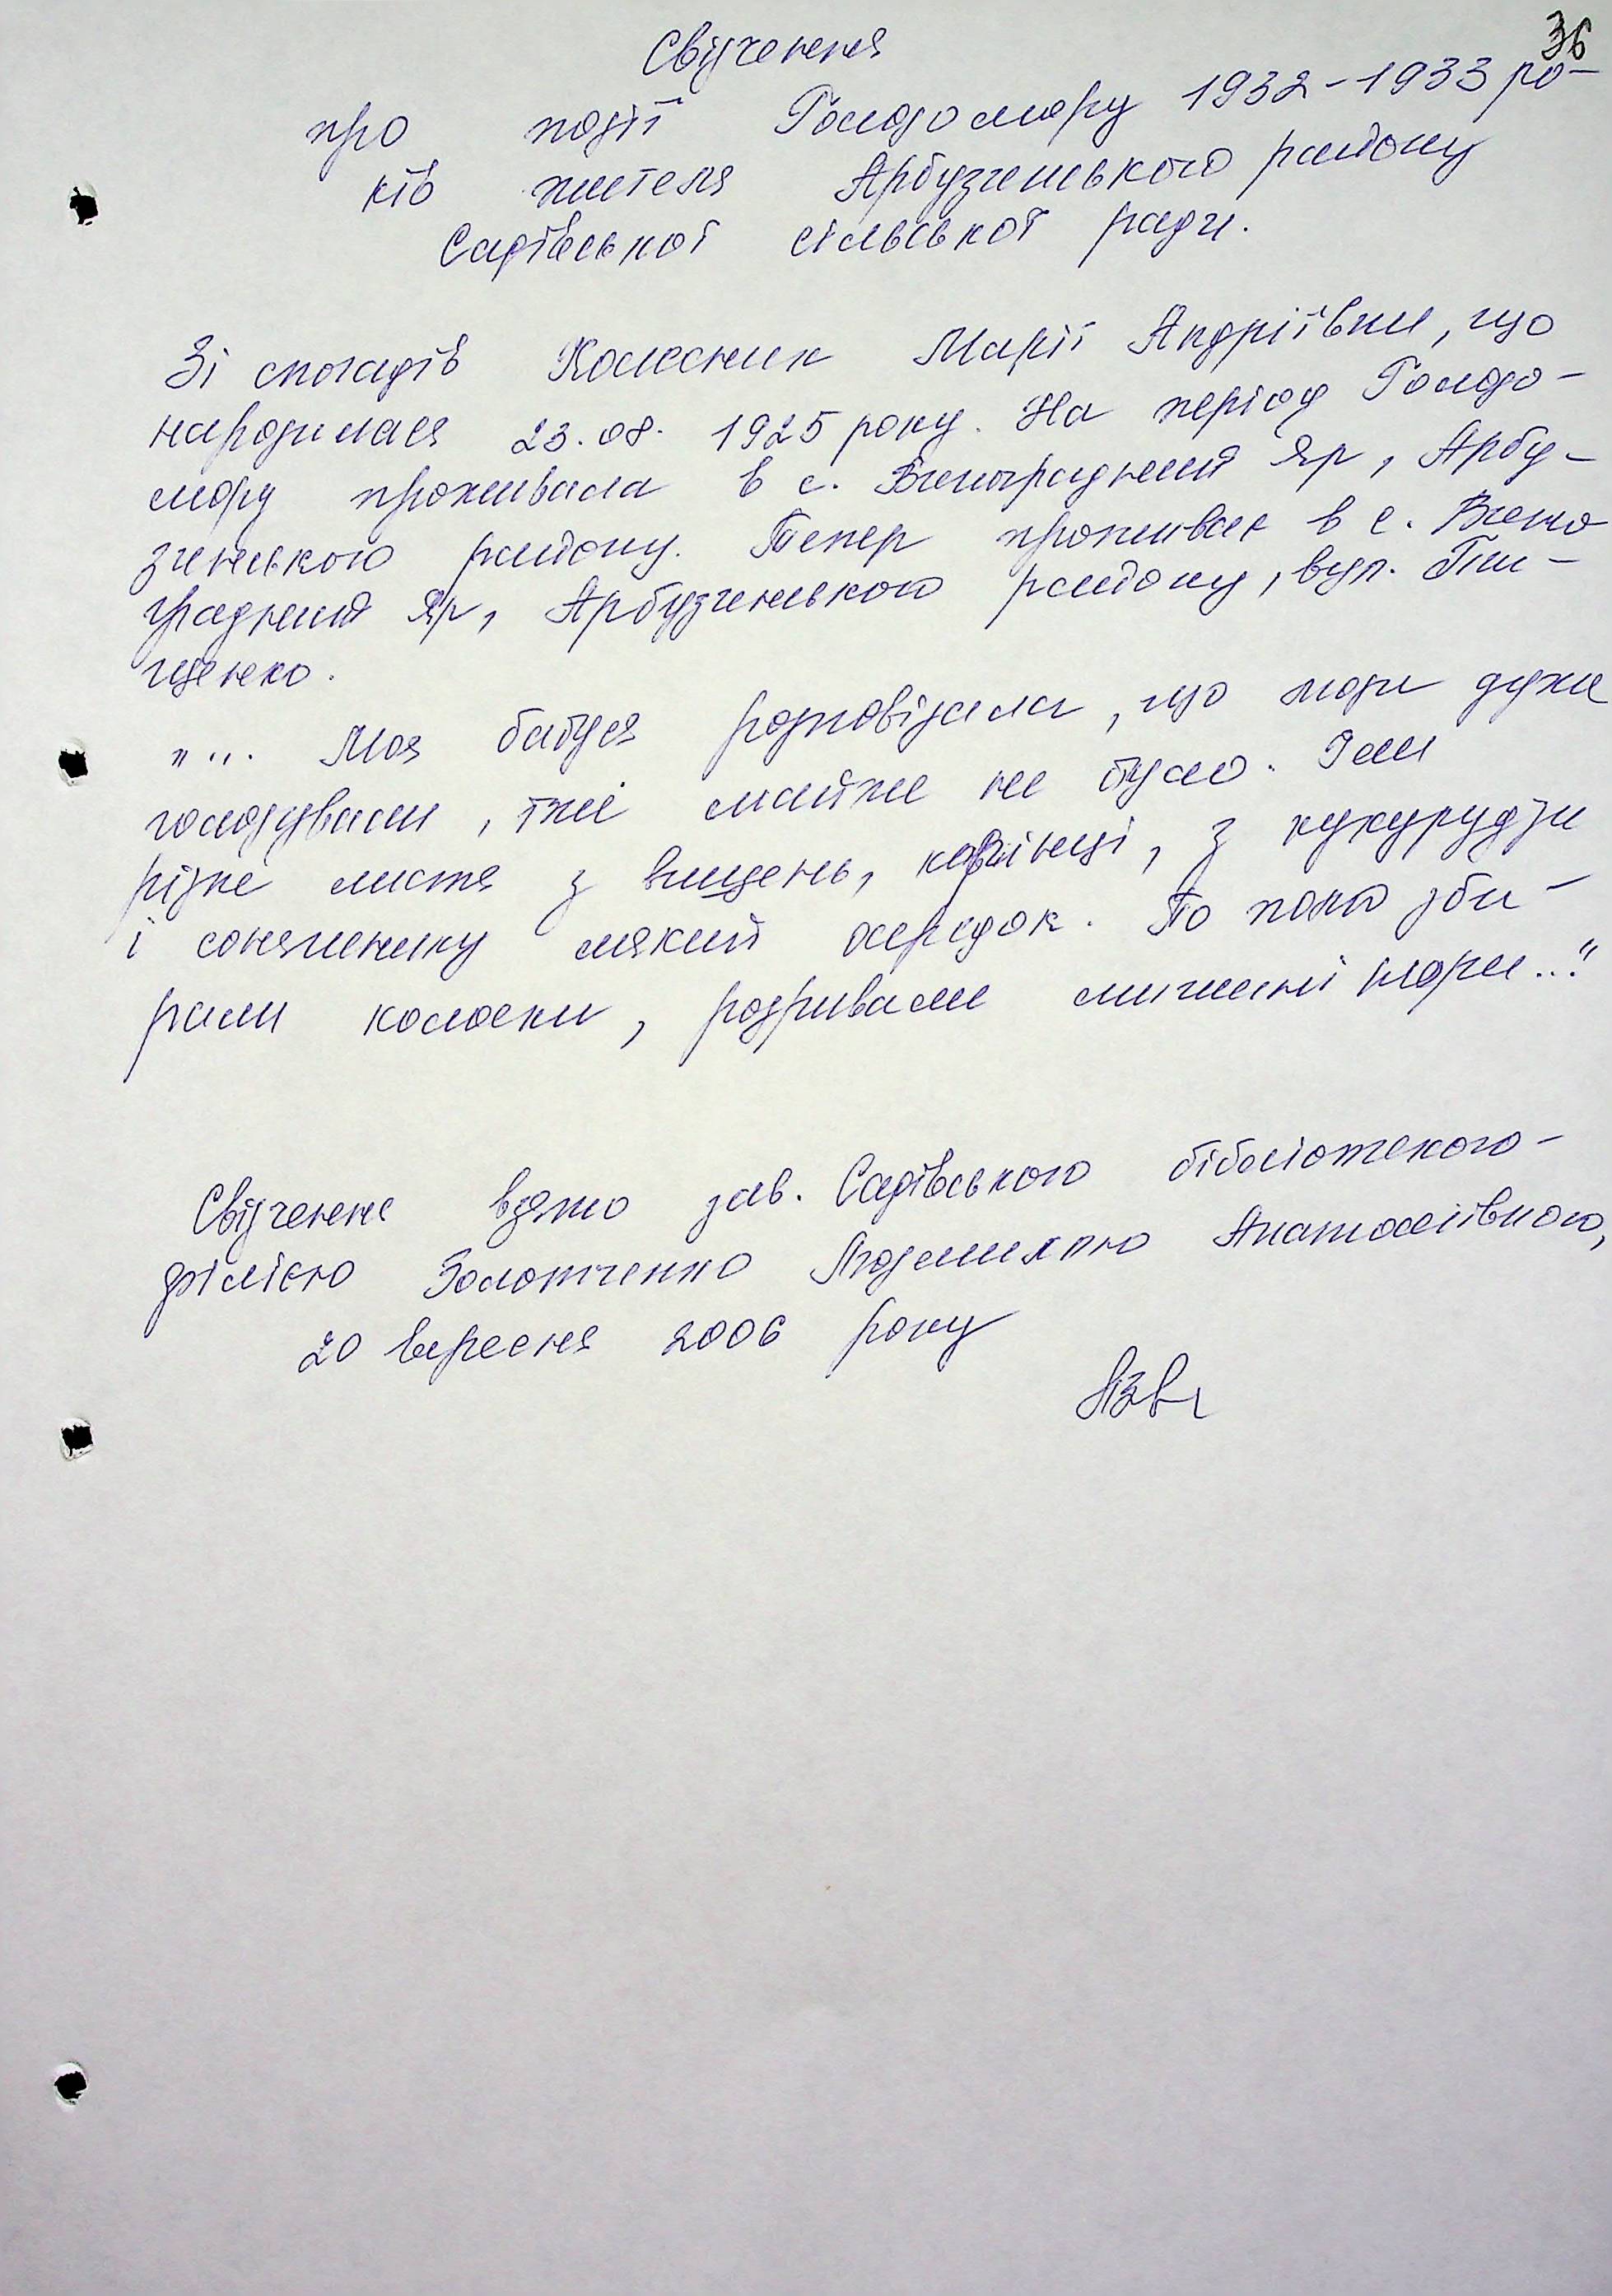 36
Свідчення
про події Голодомору 1932-1933 ро-
ків жителя Арбузинського району
Садівської сільської ради.
Зі спогадів Колесник Марії Андріївни, що
народилася 23.08. 1925 року. На період Голодо-
мору проживала в с. Виноградний Яр, Арбу-
зинського району. Тепер проживає в с. Вино
градний Яр, Арбузинського району, вул.
"... Моя бабуся розповідала, що люди дуже
голодували, їжі майже не було. Їли
різне листя з вишень, з кукурудзи
і соняшнику мякий осередок. По полю зби-
рали колоски, розривали мишачі нори..."
Свідчення взято зав. Садівського бібліотекого-
філією Золотченко Людмилою Анатоліївною,
20 вересня 2006 року